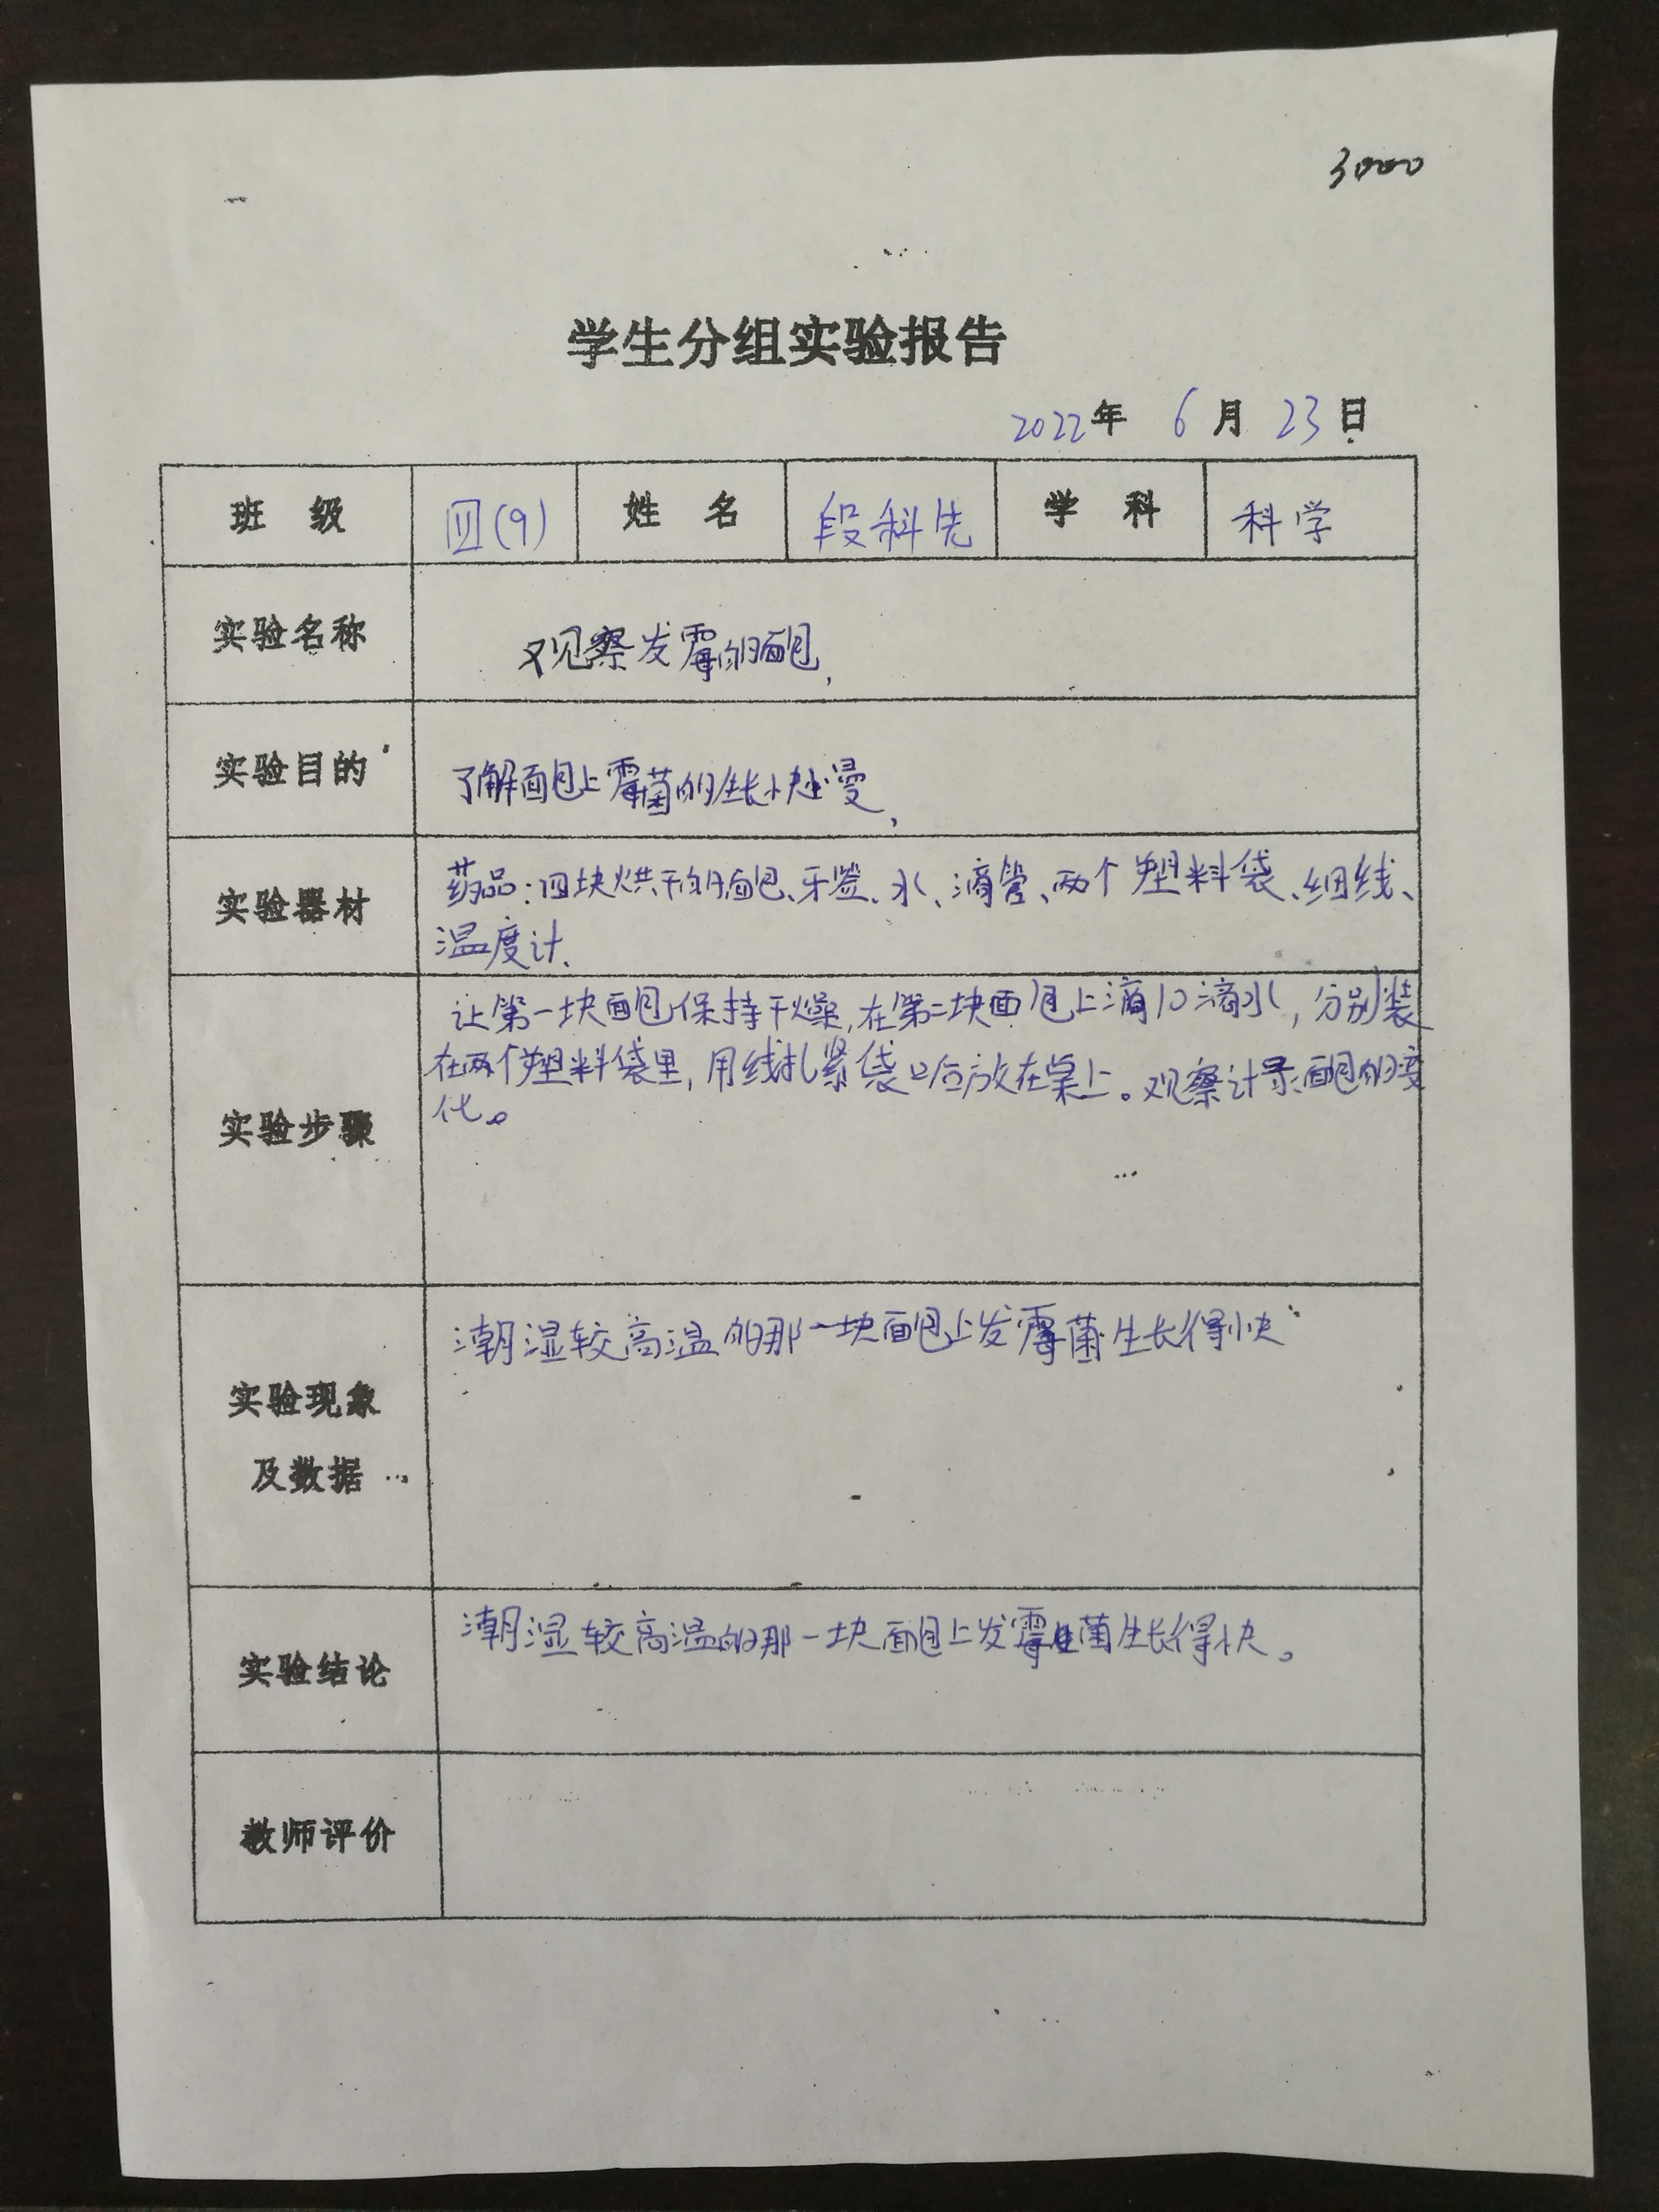 3000
学生分组实验报告
2022年 6月 23日
班 级 四(9) 姓 名 段科先 学 科 科学
实验名称 观察发霉的面包,
实验目的 了解面包上霉菌的生长快慢,
实验器材 药品:四块烘干的面包、牙签、水、滴管、两个塑料袋、细线、
温度计.
实验步骤 让第一块面包保持干燥,在第二块面包上滴10滴水,分别装
在两个塑料袋里,用线扎紧袋口后放在桌上。观察计录面包的变
化。
实验现象
及数据
潮湿较高温的那一块面包上发霉菌生长得快
实验结论 潮湿较高温的那一块面包上发霉菌生长得快。
教师评价